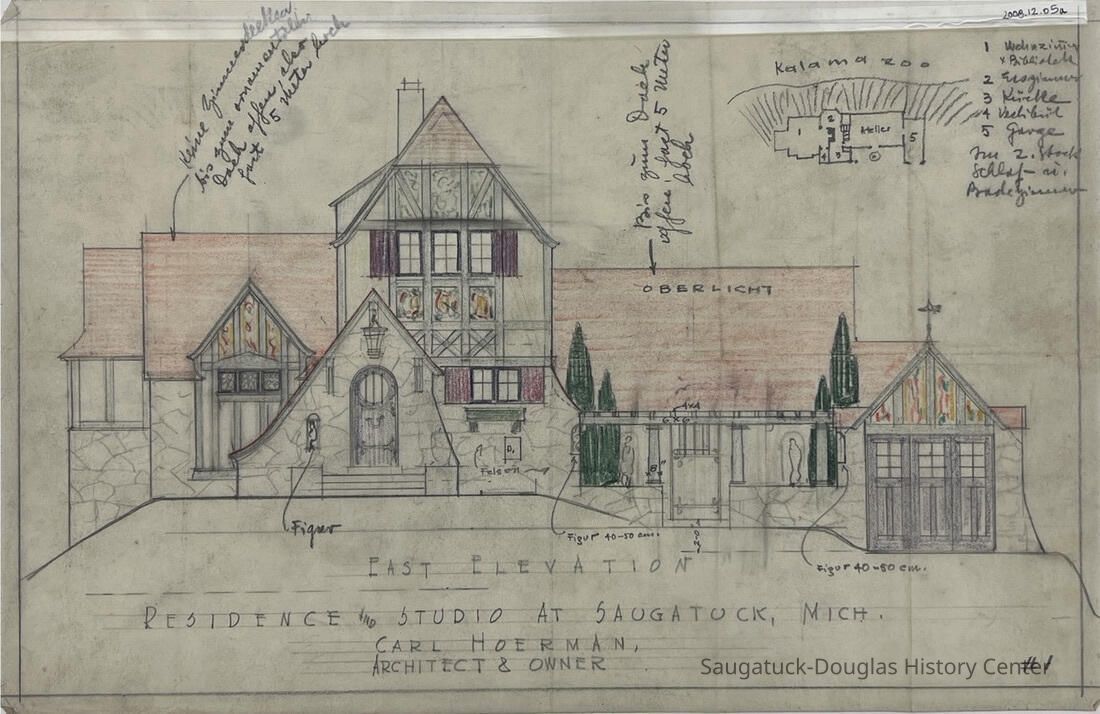 2008.12.05a
Keine Zimmerdecken
bis zum ornamentalen
Dach offen also
fast 5 Meter hoch
Bis zum Dach
offen fast 5 Meter
hoch
Kalamazoo
1
2
3
4
5
Atelier
1 Wohnzimmer
+ Bibliothek
2 Esszimmer
3 Küche
4 Vestibül
5 Garage
Im 2. Stock
Schlaf- u.
Badezimmer
OBERLICHT
4x4
6x6
8"
Felsen
Figur
Figur 40-50 cm.
Figur 40-50 cm.
EAST ELEVATION
RESIDENCE AND STUDIO AT SAUGATUCK, MICH.
CARL HOERMAN,
ARCHITECT & OWNER
Saugatuck-Douglas History Center
#1